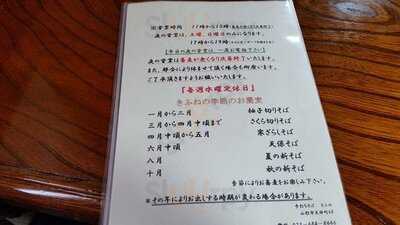 ※営業時間　１１時から１５時
夜の営業は、土曜、日曜日のみになります。
１７時から１９時
【平日の夜の営業は、一度お電話下さい】
夜の営業は蕎麦が無くなり次第終了いたします。
また、都合により休ませて頂く場合も御座います。
ご了承頂きますようお願いいたします。
「毎週水曜定休日」
きふねの季節のお蕎麦
一月から二月　柚子切りそば
三月から四月中頃まで　さくら切りそば
四月中頃から五月　寒ざらしそば
六月中頃　天保そば
八月　夏の新そば
十月　秋の新そば
季節によりお蕎麦をお楽しみ下さい。
※その年によりお出しする時期が変わる場合があります。